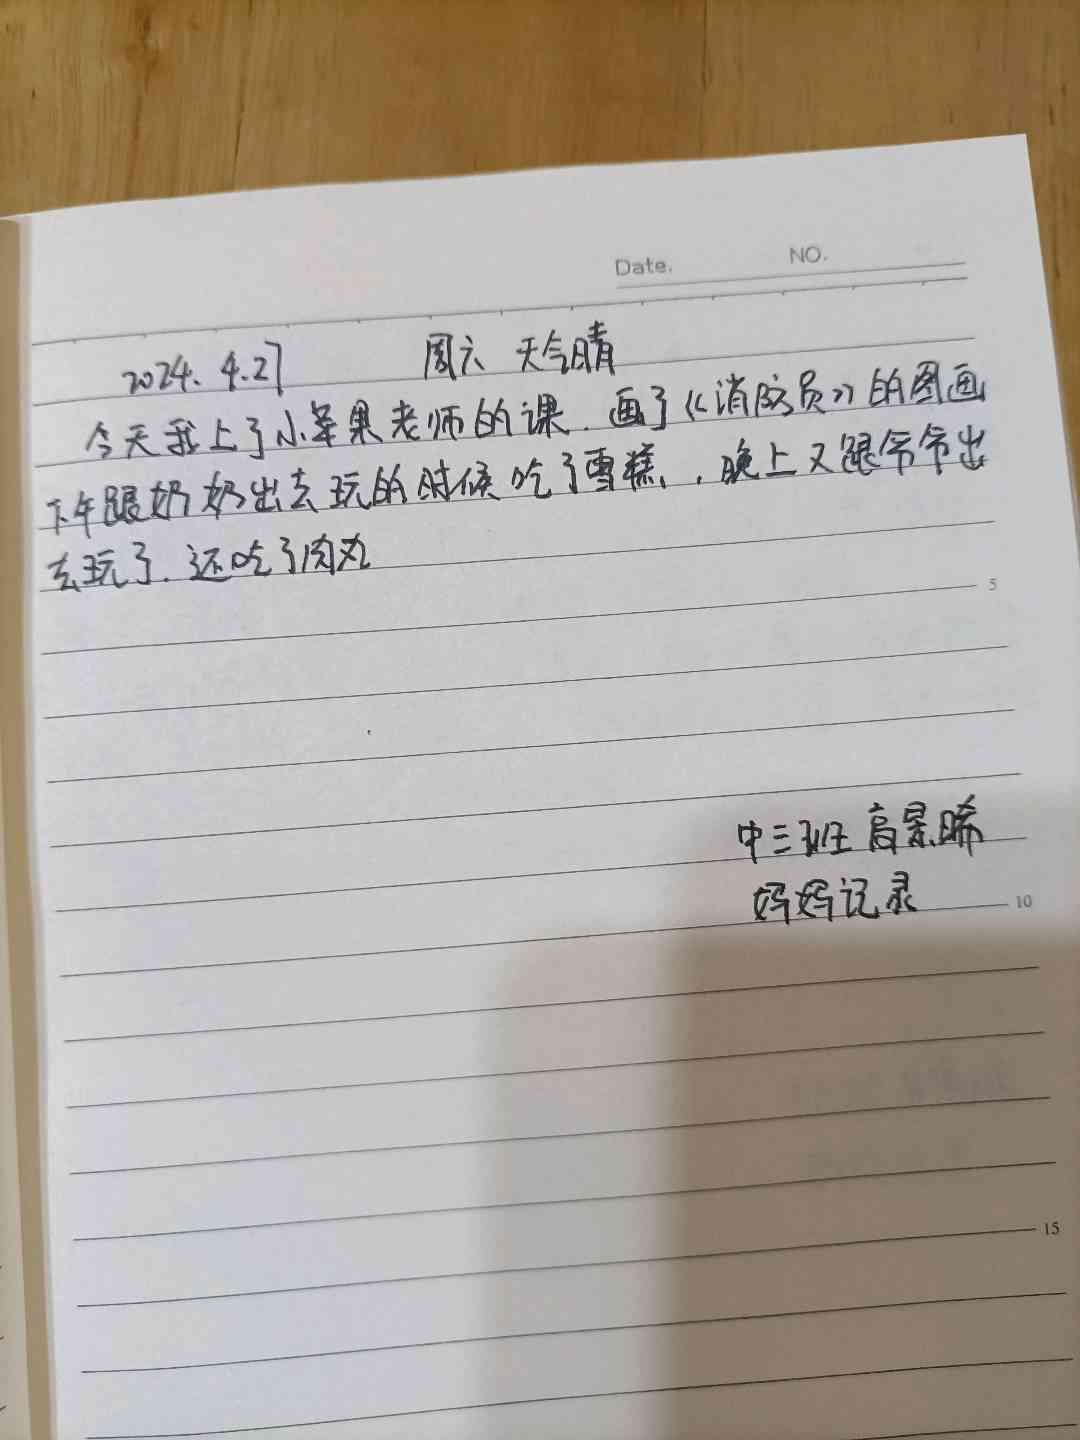 Date. NO.
2024. 4.27 周六 天气晴
今天我上了小苹果老师的课.画了《消防员》的图画
下午跟奶奶出去玩的时候吃了雪糕、.晚上又跟爷爷出
去玩了.还吃了肉丸
5
中三班 高景晞
妈妈记录
10
15